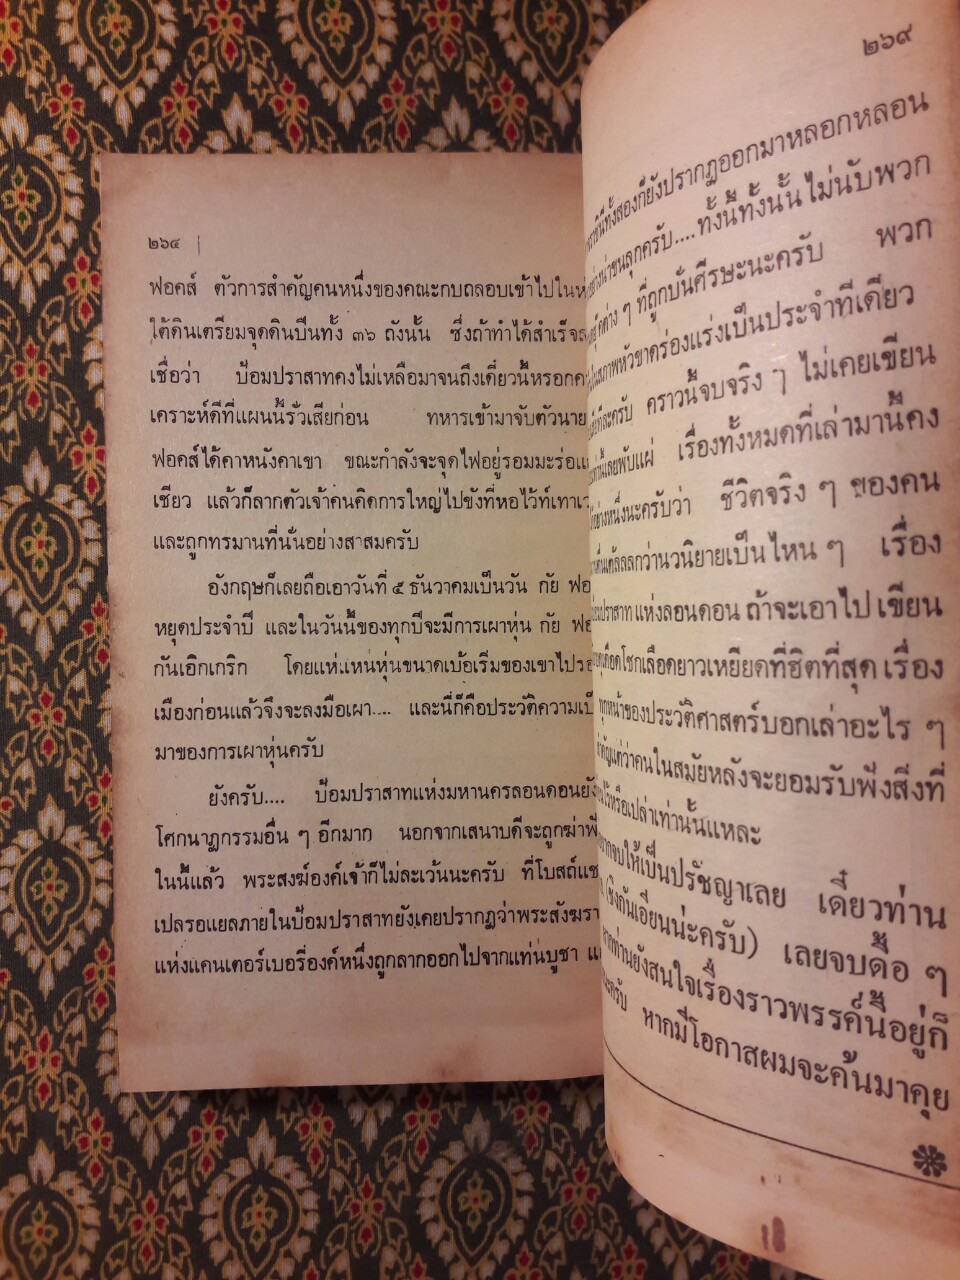 ๒๖๔
ฟอคส์ ตัวการสำคัญคนหนึ่งของคณะกบฏลอบเข้าไปใน
ใต้ดินเตรียมจุดดินปืนทั้ง ๓๖ ถังนั้น ซึ่งถ้าทำได้สำเร็จ
เชื่อว่า ป้อมปราสาทคงไม่เหลือมาจนถึงเดี๋ยวนี้หรอก
เคราะห์ดีที่แผนนี้รั่วเสียก่อน ทหารเข้ามาจับตัวนาย
ฟอคส์ได้คาหนังคาเขา ขณะกำลังจะจุดไฟอยู่รอมมะร่อ
เชียว แล้วก็ลากตัวเจ้าคนคิดการใหญ่ไปขังที่หอไว้ท์เทา
และถูกทรมานที่นั่นอย่างสาสมครับ
อังกฤษก็เลยถือเอาวันที่ ๕ ธันวาคมเป็นวัน กัย
หยุดประจำปี และในวันนี้ของทุกปีจะมีการเผาหุ่น กัย
กันเอิกเกริก โดยแห่แหนหุ่นขนาดเบ้อเริ่มของเขาไป
เมืองก่อนแล้วจึงจะลงมือเผา.... และนี่ก็คือประวัติความ
มาของการเผาหุ่นครับ
ยังครับ.... ป้อมปราสาทแห่งมหานครลอนดอนยัง
โศกนาฏกรรมอื่น ๆ อีกมาก นอกจากเสนาบดีจะถูกฆ่า
ในนี้แล้ว พระสงฆ์องค์เจ้าก็ไม่ละเว้นนะครับ ที่โบสถ์
เปลรอแยลภายในป้อมปราสาทยังเคยปรากฏว่าพระสังฆรา
แห่งแคนเตอร์เบอรี่องค์หนึ่งถูกลากออกไปจากแท่นบูชา
๒๖๙
ทั้งสองก็ยังปรากฏออกมาหลอกหลอน
น่าขนลุกครับ.... ทั้งนี้ทั้งนั้น ไม่นับพวก
ต่าง ๆ ที่ถูกบั่นศีรษะนะครับ พวก
ในสภาพหัวขาดร่องแร่งเป็นประจำทีเดียว
ครับ คราวนี้จบจริง ๆ ไม่เคยเขียน
เลยพับแผ่ เรื่องทั้งหมดที่เล่ามานี้คง
อย่างหนึ่งนะครับว่า ชีวิตจริง ๆ ของคน
กว่านวนิยายเป็นไหน ๆ เรื่อง
ปราสาท แห่งลอนดอน ถ้าจะเอาไป เขียน
โชกเลือดยาวเหยียดที่ฮิตที่สุด เรื่อง
ทุกหน้าของประวัติศาสตร์บอกเล่าอะไร ๆ
สำคัญแต่ว่าคนในสมัยหลังจะยอมรับฟังสิ่งที่
ไว้หรือเปล่าเท่านั้นแหละ
จบให้เป็นปรัชญาเลย เดี๋ยวท่าน
(ชิงกันเอียนน่ะครับ) เลยจบดื้อ ๆ
ท่านยังสนใจเรื่องราวพรรค์นี้อยู่ก็
นะครับ หากมีโอกาสผมจะค้นมาคุย